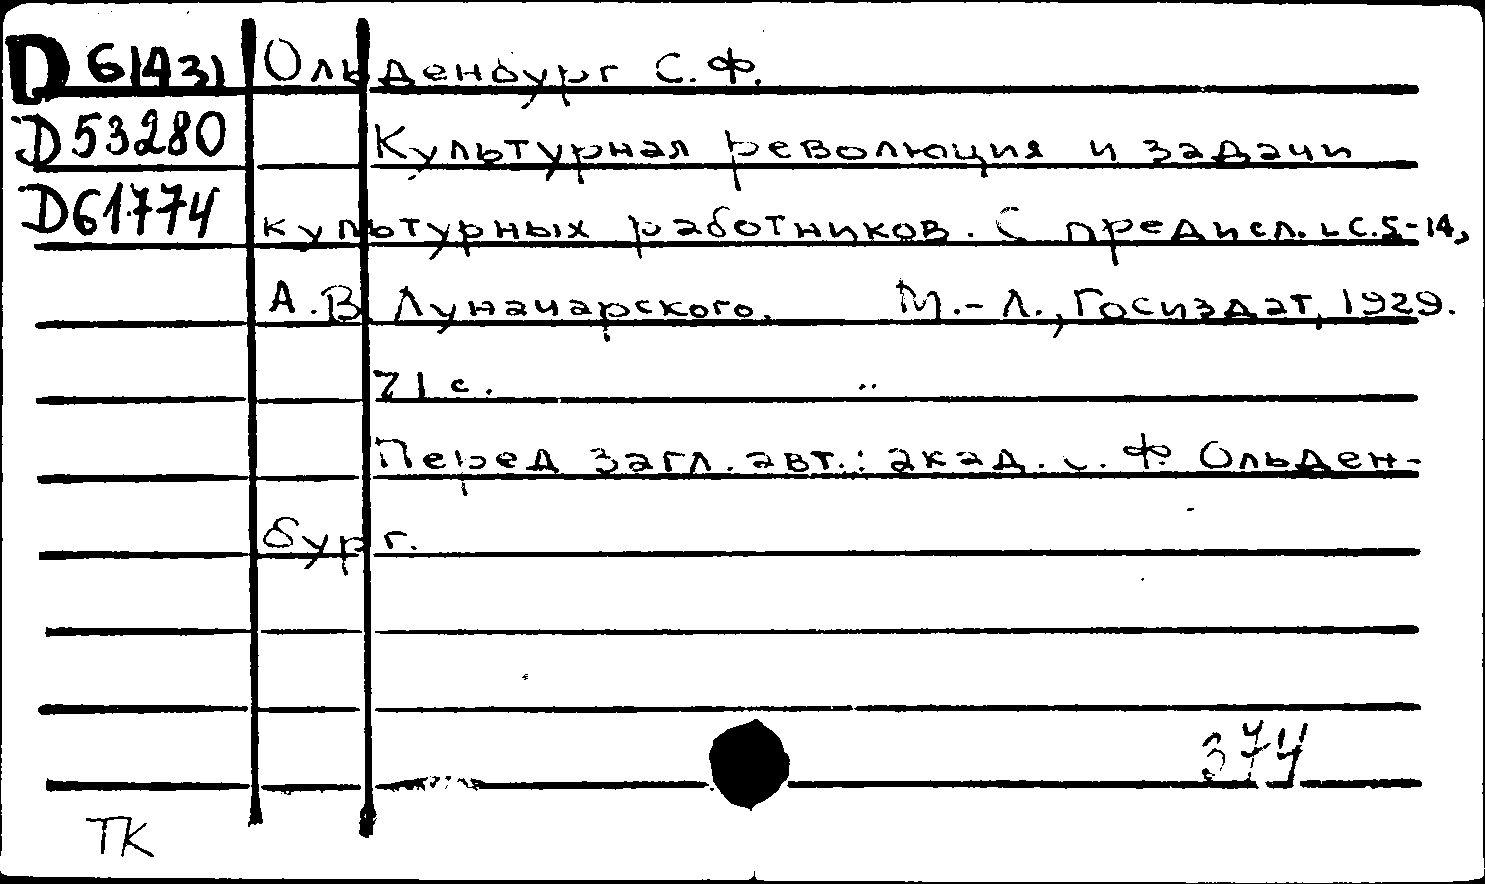 D 61431 Ольденбург С.Ф.
D 53280 Культурная революция и задачи
D61774 культурных работников. С предисл. С.5-14,
А.В. Луначарского. М.-Л., Госиздат, 1929.
71 с.
Перед загл. авт.: акад. С. Ф. Ольден-
бург.
374
ТК